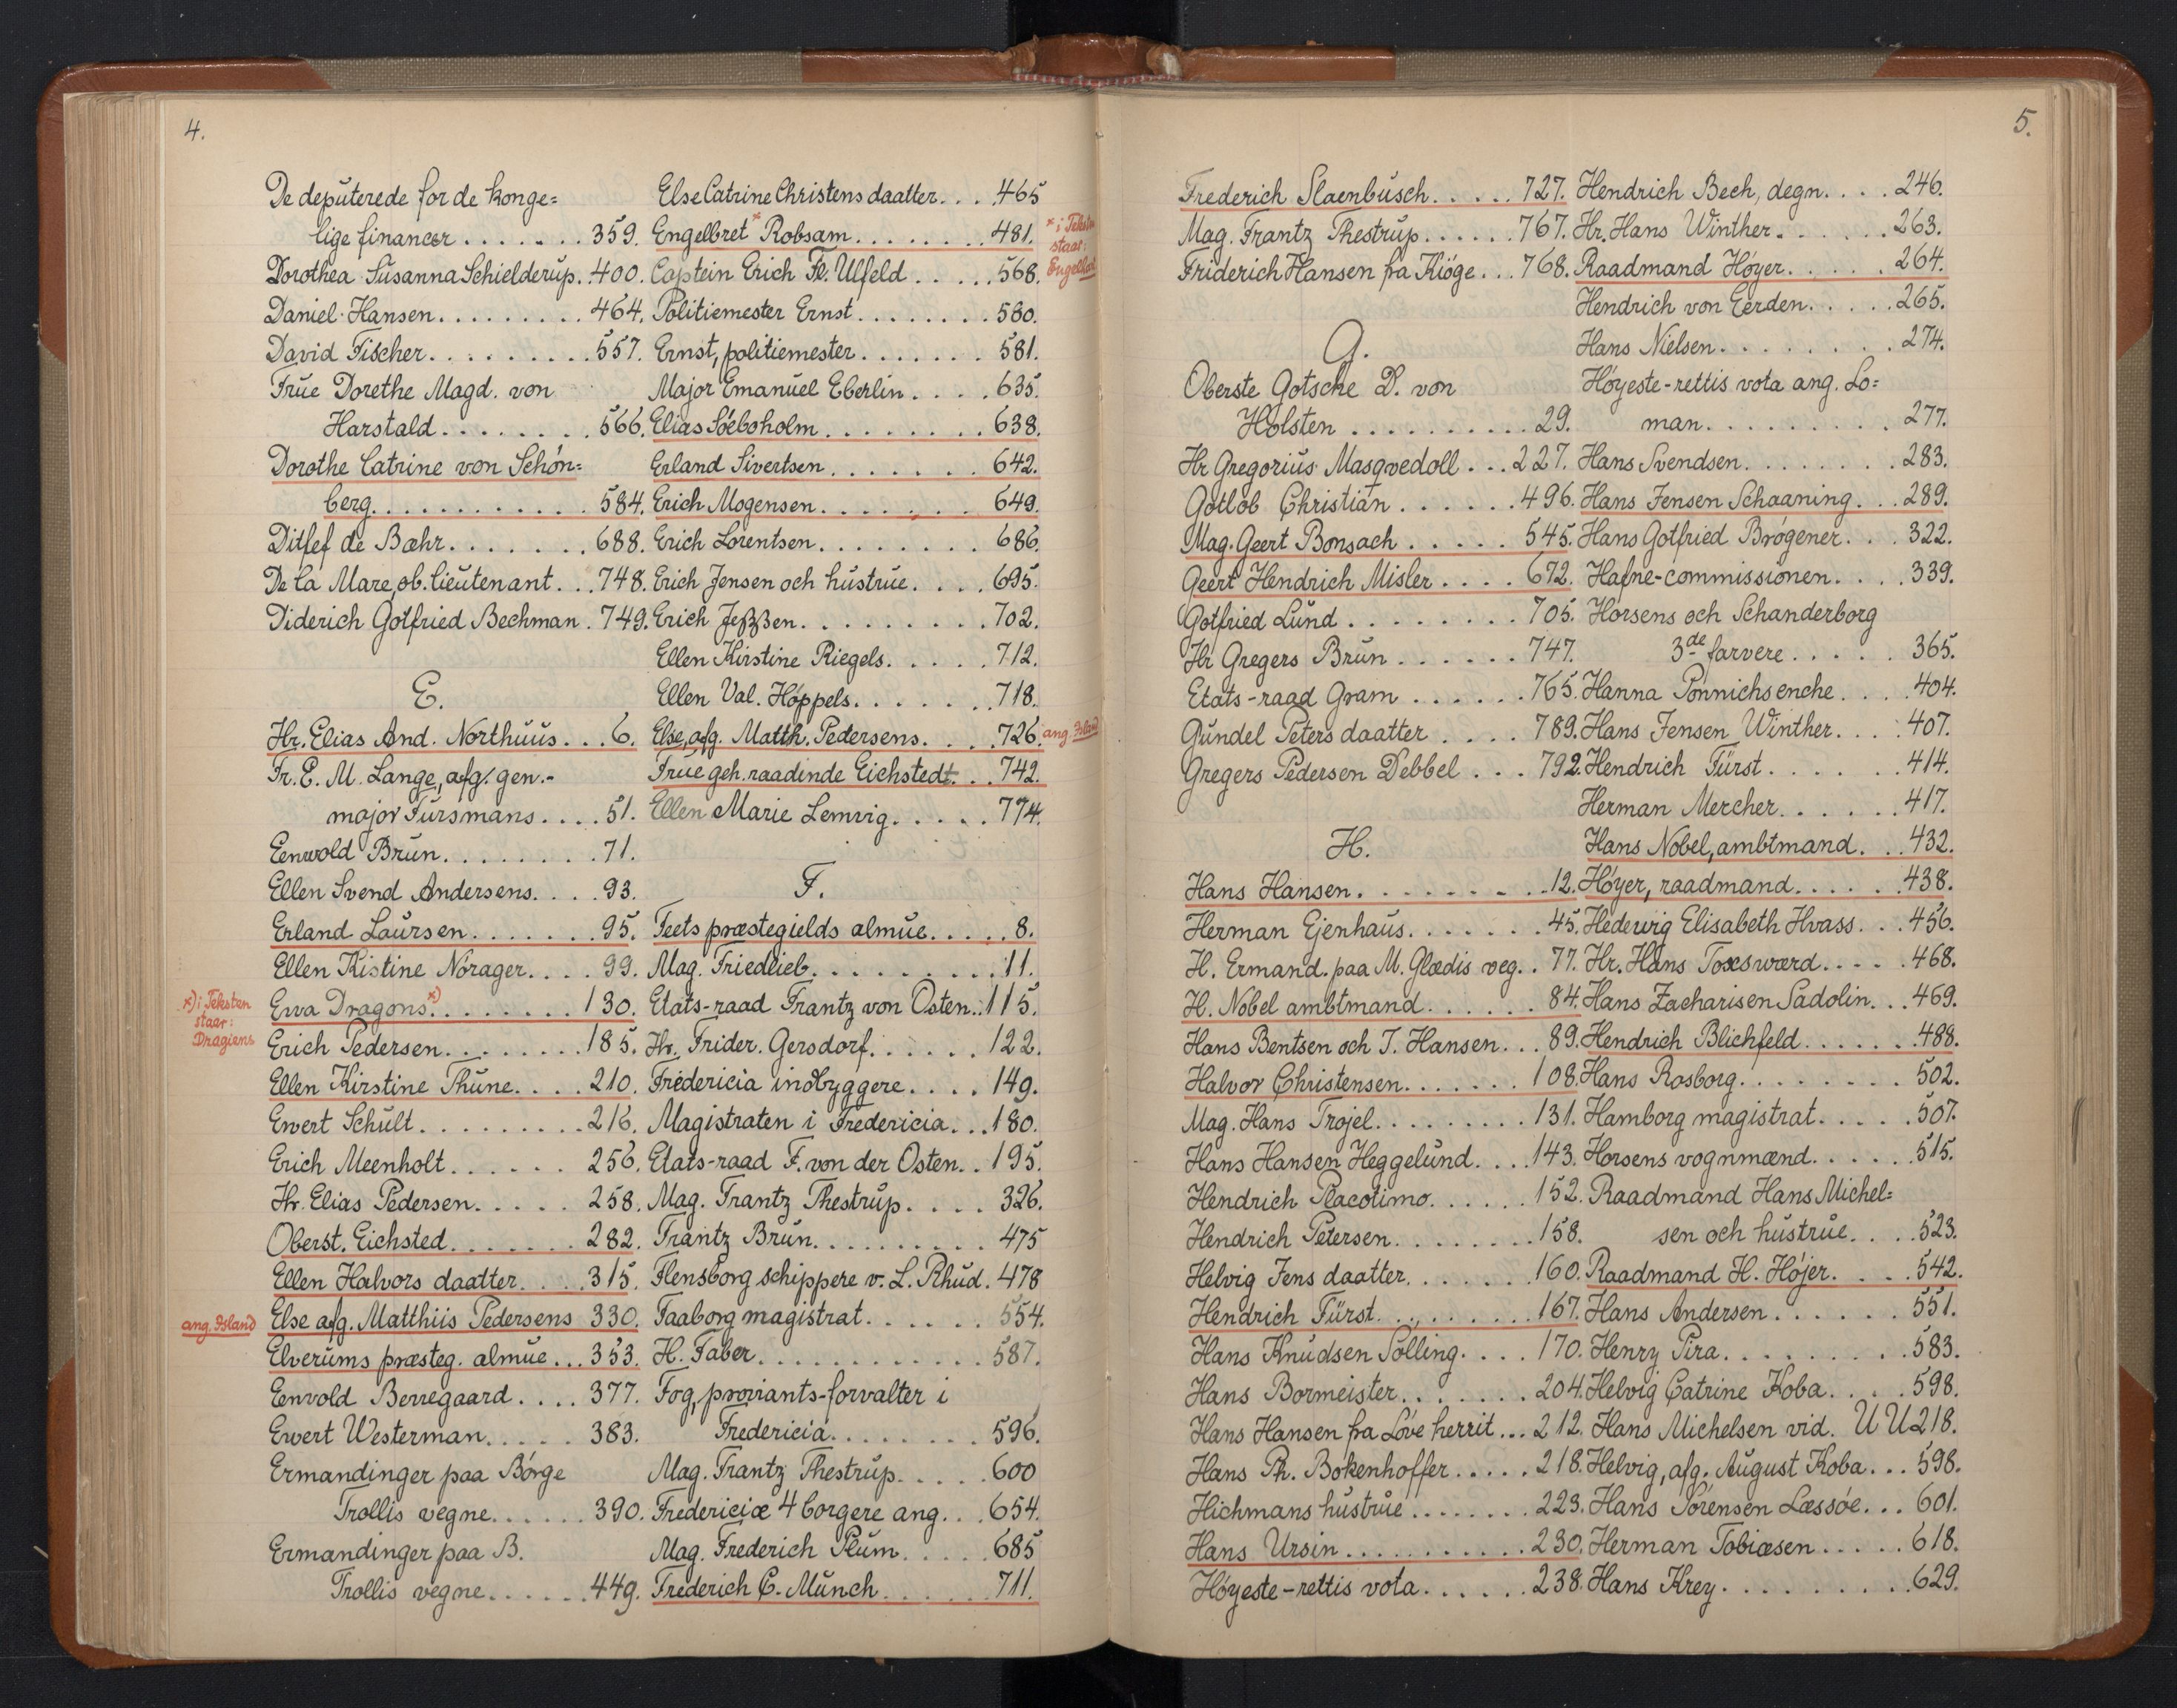 4.
De deputerede for de konge=
lige financer . . . . . . . 359.
Dorothea Susanna Schielderup. . 400.
Daniel Hansen. . . . . . . . . 464.
David Fischer. . . . . . . . . 557.
Frue Dorethe Magd. von
Harstald. . . . . . . . 566.
Dorothe Catrine von Schön=
berg. . . . . . . . . . . 584.
Ditlef de Bæhr. . . . . . . 688.
De la Mare, ob. lieutenant. . . 748.
Diderich Gotfried Bechman . 749.
E.
Hr. Elias And. Northuus. . . 6.
Fr. E. M. Lange, afg. gen.-
major Fursmans. . . . 51.
Eenwold Brun. . . . . . . . 71.
Ellen Svend Andersens. . . . 93.
Erland Laursen. . . . . . . 95.
Ellen Kistine Nörager. . . . 99.
*) i Teksten
staar:
Dragiens
Ewa Dragons.*) . . . . . . . 130.
Erich Pedersen. . . . . . . . 185.
Ellen Kirstine Thune. . . . 210.
Ewert Schult. . . . . . . . . 216.
Erich Meenholt. . . . . . 256.
Hr. Elias Pedersen. . . . . 258.
Oberst. Eichsted. . . . . . . 282.
Ellen Halvors daatter. . . . 315.
ang. Island
Else afg. Matthiis Pedersens 330.
Elverums præsteg. almue. . . 353.
Eenvold Berregaard. . . . 377.
Ewert Westerman. . . . . 383.
Ermandinger paa Börge
Trollis vegne. . . . . . 390.
Ermandinger paa B.
Trollis vegne. . . . . . 449.
Else Catrine Christens daatter. . . 465
Engelbret* Robsam. . . . . . . . 481.
* i Teksten
staar:
Captein Erich Fr. Ulfeld . . . . . 568.
Politiemester Ernst. . . . . . . . 580.
Ernst, politiemester. . . . . . . 581.
Major Emanuel Eberlin. . . . 635.
Elias Söeboholm. . . . . . . . 638.
Erland Sivertsen. . . . . . . 642.
Erich Mogensen. . . . . . . 649.
Erich Lorentsen. . . . . . . . 686.
Erich Jensen och hustrue. . . . 695.
Erich Jeßßen. . . . . . . . . 702.
Ellen Kirstine Riegels. . . . . 712.
Ellen Val. Höppels. . . . . . . 718.
Else, afg. Matth. Pedersens. . . . 726. ang. Island
Frue geh. raadinde Eichstedt. . . 742.
Ellen Marie Lemvig. . . . . 774.
F.
Feets præstegields almue. . . . . 8.
Mag. Friedlieb. . . . . . . . . 11.
Etats-raad Frantz von Osten. . 115.
Hr. Frider. Gersdorf. . . . . . 122.
Fridericia indbyggere. . . . 149.
Magistraten i Fredericia. . . 180.
Etats-raad F. von der Osten. . 195.
Mag. Frantz Thestrup. . . . 326.
Frantz Brun. . . . . . . . . . 475
Flensborg schippere v. L. Rhud. 478
Faaborg magistrat. . . . . . 554.
H. Faber. . . . . . . . . . . . 587.
Fog, proviants-forvalter i
Fredericia. . . . . . . . 596.
Mag. Frantz Thestrup. . . . . 600
Fredericiæ 4 borgere ang. . . 654.
Mag. Frederich Plum. . . . . 685
Frederich C. Münch. . . . . . 711.
5.
Frederich Slaenbusch. . . . . 727.
Mag. Frantz Thestrup. . . . . . 767.
Friderich Hansen fra Kiöge. . . 768.
G.
Oberste Gotsche D. von
Holsten . . . . . . . . . . 29.
Hr Gregorius Masqvedoll . . . 227.
Gotlob Christian . . . . . . 496.
Mag. Geert Bonsach . . . . . 545.
Geert Hendrich Misler . . . . 672.
Gotfried Lund . . . . . . . . 705.
Hr Gregers Brun . . . . . . 747.
Etats-raad Gram . . . . . . 765.
Gundel Peters daatter . . . . 789.
Gregers Pedersen Debbel . . . 792.
H.
Hans Hansen. . . . . . . . . 12.
Herman Ejenhaus. . . . . . . 45.
H. Ermand. paa M. Glædis veg. . 77.
H. Nobel ambtmand. . . . . . 84.
Hans Bentsen och J. Hansen. . . 89.
Halvor Christensen. . . . . . . 108.
Mag. Hans Trojel. . . . . . . . . 131.
Hans Hansen Heggelund. . . . 143.
Hendrich Placotimo. . . . . . 152.
Hendrich Petersen. . . . . . . . 158.
Helvig Jens daatter. . . . . . . 160.
Hendrich Fürst. . . . . . . . . 167.
Hans Knudsen Sölling. . . . 170.
Hans Bormeister. . . . . . . 204.
Hans Hansen fra Löve herrit. . . 212.
Hans Ph. Bokenhoffer. . . . . 218.
Hichmans hustrue . . . . . . . 223.
Hans Ursin. . . . . . . . . . . 230.
Höyeste-rettis vota. . . . . . 238.
Hendrich Bech, degn. . . . 246.
Hr. Hans Winther. . . . . . 263.
Raadmand Höyer. . . . . 264.
Hendrich von Eerden. . . . . 265.
Hans Nielsen. . . . . . . . 274.
Höyeste-rettis vota ang. Lo=
man. . . . . . . . . 277.
Hans Svendsen. . . . . . . . 283.
Hans Jensen Schaaning. . . 289.
Hans Gotfried Brögener. . . 322.
Hafne-commissionen. . . . 339.
Horsens och Schanderborg
3de farvere. . . . . 365.
Hanna Ponnichsenche. . . . 404.
Hans Jensen Winther. . . . 407.
Hendrich Fürst. . . . . . . 414.
Herman Mercher. . . . . . 417.
Hans Nobel, ambtmand. . . 432.
Höyer, raadmand. . . . . . 438.
Hedewig Elisabeth Hvass. . . 456.
Hr. Hans Toxsword. . . . . 468.
Hans Zacharisen Sadolin. . . 469.
Hendrich Blichfeld. . . . . . . 488.
Hans Rosborg. . . . . . . . 502.
Hamborg magistrat. . . . . 507.
Horsens vognmænd. . . . . . 515.
Raadmand Hans Michel=
sen och hustrue. . . . 523.
Raadmand H. Höjer. . . . 542.
Hans Andersen. . . . . . . 551.
Henry Pira. . . . . . . . . . 583.
Helvig Catrine Koba. . . . . 598.
Hans Michelsen vid. U U 218.
Helvig, afg. August Koba. . . 598.
Hans Sörensen Læssöe. . . 601.
Herman Tobiæsen. . . . . 618.
Hans Krey. . . . . . . . . . 629.